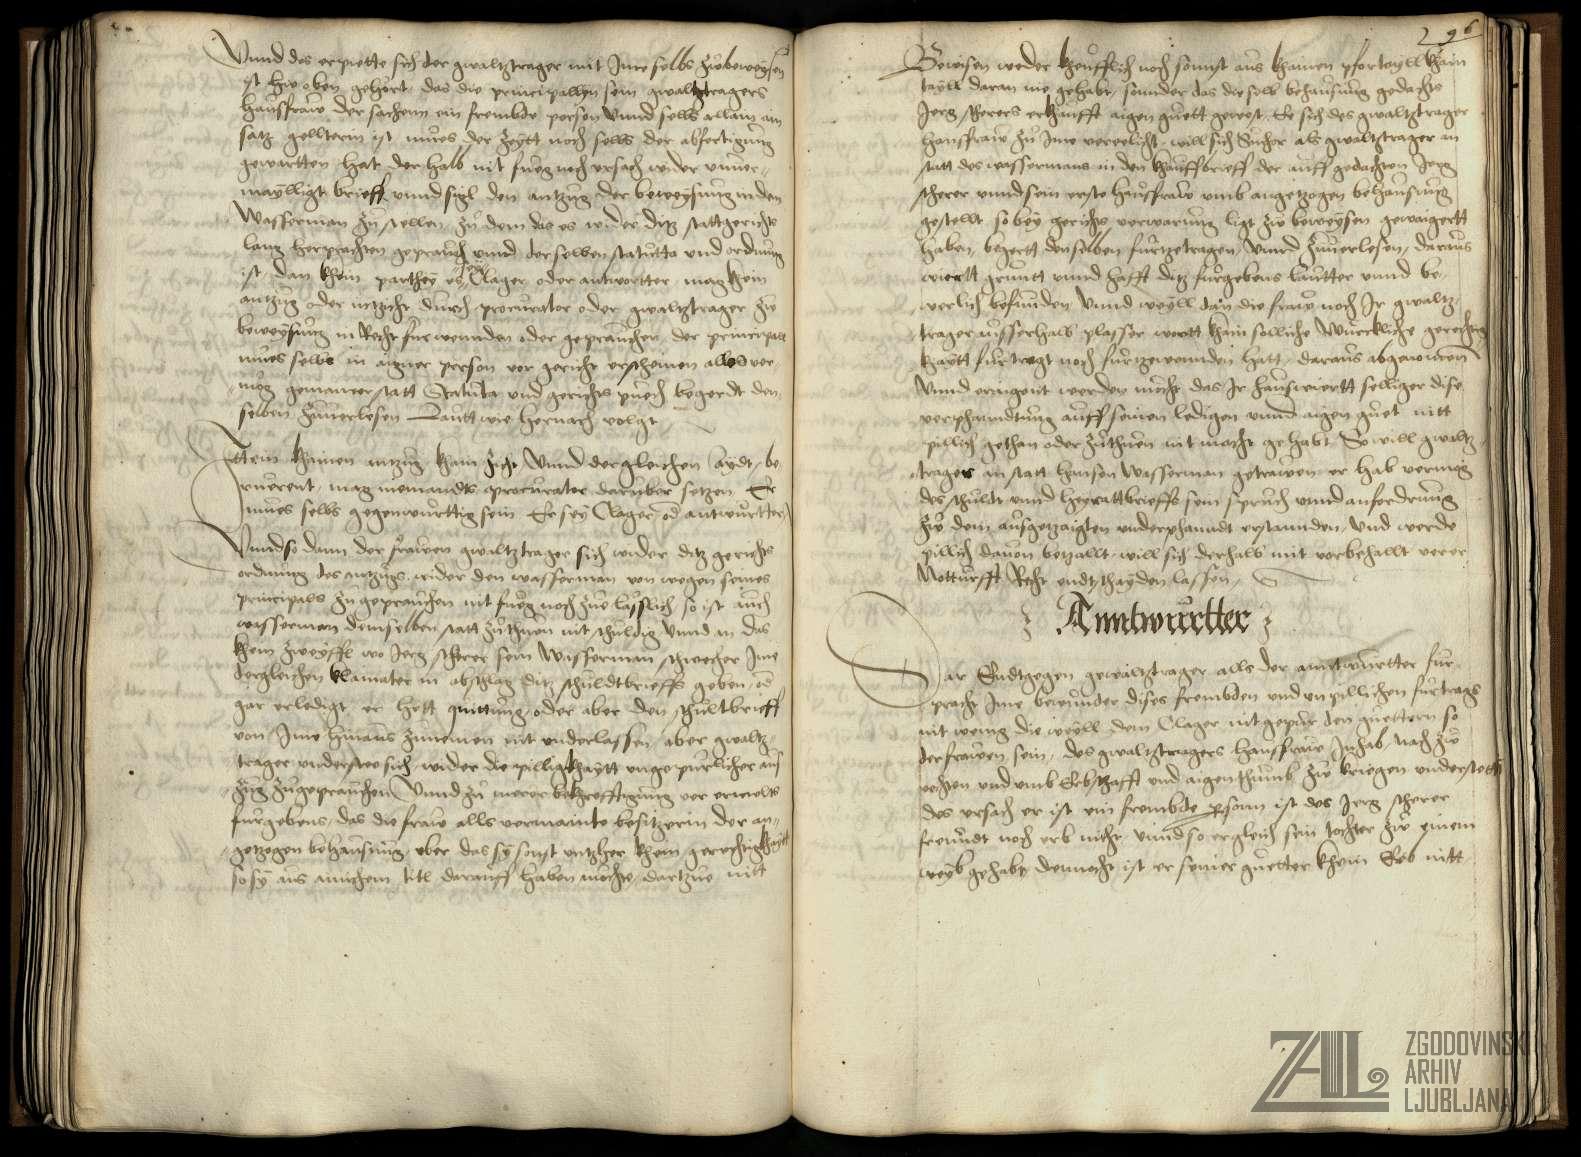 Vnnd des erpiette sich der gwaltztrager mit Ime selbs zubeweysen
ist hie oben gehört, das die principallyn sein gwaltztragers
hausfraw der sachenn ein frembde person vnnd selbs allain ain
satz gelltterin ist mues der Zeytt noch selbs der abfertigung
gewartten hat derhalb nit fueg noch vrsach wider vnuer-
mayligt brieff vnnd sigl den antzug der beweysung in den
Wasserman zu stellen zu dem das es wider ditz stattgerichts
lang herprachten geprauch vnnd derselben statutta vnd ordnung
ist, dan khein parthey es Clager oder antwortter mag khein
antzug oder intzicht durch procurator oder gwaltztrager zu
beweysung in Recht furwennden oder geprauchen, der principall
mues selbs in aigner person vor gericht erscheinen alles ver-
mög gemainer statt Statuta vnd gerichts puech begerdt den-
selben zuuerlesen Lautt wie hernach volgt
Ittem khainen antzug kain zicht Vnnd dergleichen aydt be-
ruerent, mag niemandts procurator daruber setzen Er
mues selbs gegenwurttig sein Er sey Clager od antwurtter
Vnnd so dann der frawen gwaltztrager sich wider ditz gerichts
ordnung des antzugs wider den wasserman von wegen seines
principals zu geprauchen nit fueg noch zue läslich so ist auch
wasserman demselben statt zuthuen nit schuldig Vnnd an das
khein zweyffl wo Jerg scherer sein Wasserman schwecher Ime
dergleichen klainater in abschlag ditz schuldtbrieffs geben, od
gar erledigt er hett quittung oder aber den schultbrieff
von Ime hinaus zunemen nit vnderlassen, aber gwaltz-
trager vnderstee sich wider die pilligkhaytt vngepurlicher aus
zug zugeprauchen Vnnd zu merer bekrefftigung vor ermelts
furgebens, das die fraw alls vermainte besitzerin der an-
getzogen behausung, vber das sy sonst vntzher khein gerechtigkhaytt
so sy aus ainichem titl darauff haben möchte, dartzue nitt
296
Bewisen weder kheufflich noch sonnst aus khainen pfortayll khain
tayll daran nie gehabt, sonnder das dieselb behausung gedachts
Jerg scherers erkhaufft aigen guett gewest, Ee sich des gwaltztrager
hausfraw zu Ime vereelicht, will sich Sucher als gwaltztrager an
statt des wassermans in den khauffbrieff der auff gedachten Jerg
scherer vnnd sein erste hausfraw vmb angetzogen behausung
gestellt so bey gerichts verwarung ligt zu beweysen gewaigertt
haben, begertt denselben furtzetragen Vnnd Zuuerlesen, daraus
wiertt grundt vnnd hafft ditz furgebens lautter vnnd be-
werlich befunden Vnnd weyll dan die fraw noch Ir gwaltz-
trager ausserhalb plasser wortt khain solliche Wurckliche gerechtig-
khaytt furtregt noch furtzewennden hatt, daraus abgenomen
Vnnd erzwungent werden möcht das Ir hauswiertt selliger dise
verphanndtung auff seinen ledigen vnnd aigen guet nitt
pillich gethan oder zuthuen nit macht gehabt So will gwaltz-
trager an statt hansen Wasserman getrawen er hab vermug
des schuldt vnnd heyrattbrieffs sein spruch vnnd anfordrung
zu dem ausgetzaigten vnderphanndt erstannden Vnd werde
pillich dauon betzallt, will sich derhalb mit vorbehallt verer
Notturfft Recht endtschayden lassen,
Anntwurtter
Dar Endtgegen gewaltztrager alls der anntwurtter fur-
pracht Ime bewunder dises frembden vnd vnpillichen furtrags
nit wenig die weyll dem Clager nit gepur den guettern so
der frawen sein, des gwaltztragers hausfraw Inhab, nach zu
rechten vnd vmb Erbschafft vnd aigenthumb zu kriegen vnderstett
des vrsach er ist ein frembde person ist des Jerg scherer
freundt noch erb nicht vnnd so er gleich sein tochter zu einem
weyb gehabt, dennocht ist er seiner guetter khein Erb nitt
ZAL
ZGODOVINSKI
ARHIV
LJUBLJANA